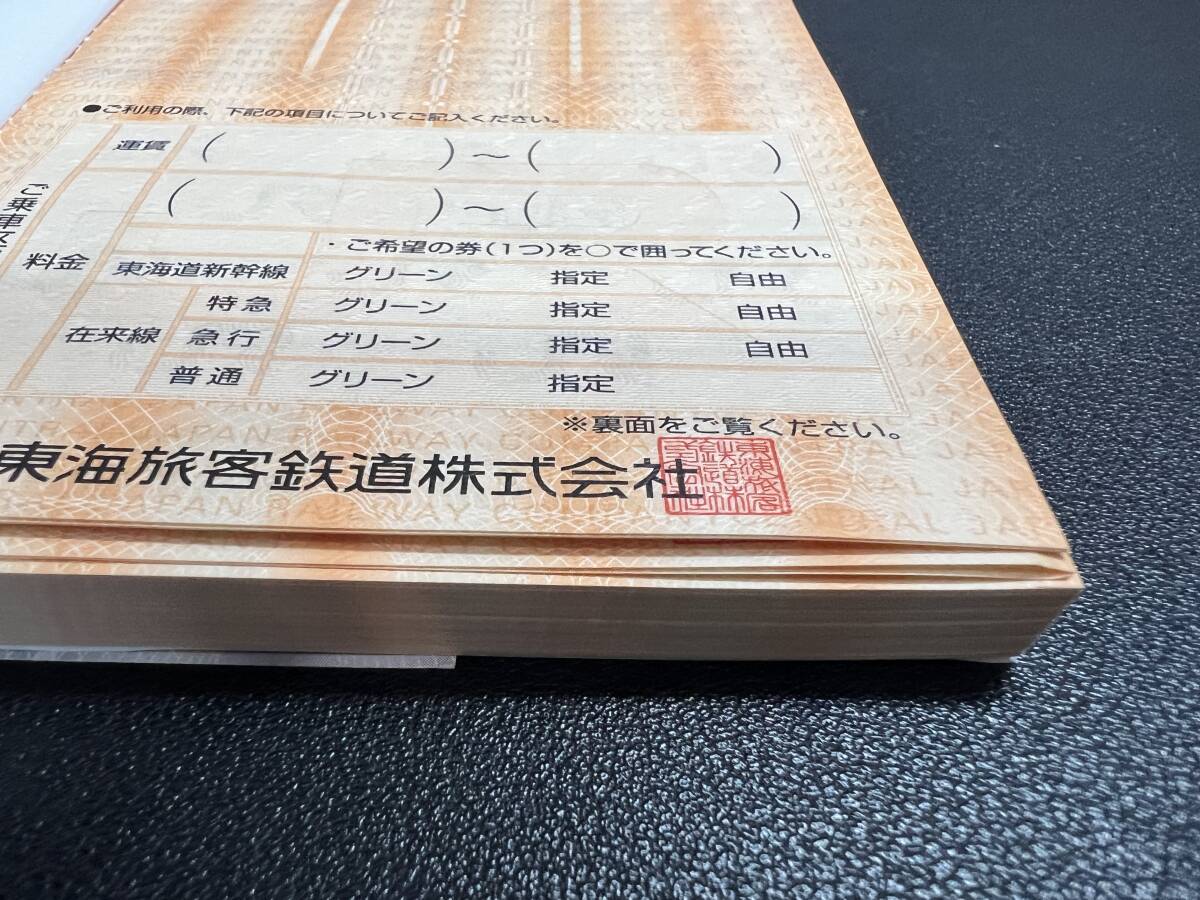 ●ご利用の際、下記の項目についてご記入ください。
ご乗車区
運賃 ( )~( )
料金 ( )~( )
・ご希望の券(1つ)を○で囲ってください。
東海道新幹線 グリーン 指定 自由
在来線
特急 グリーン 指定 自由
急行 グリーン 指定 自由
普通 グリーン 指定
※裏面をご覧ください。
東海旅客鉄道株式会社